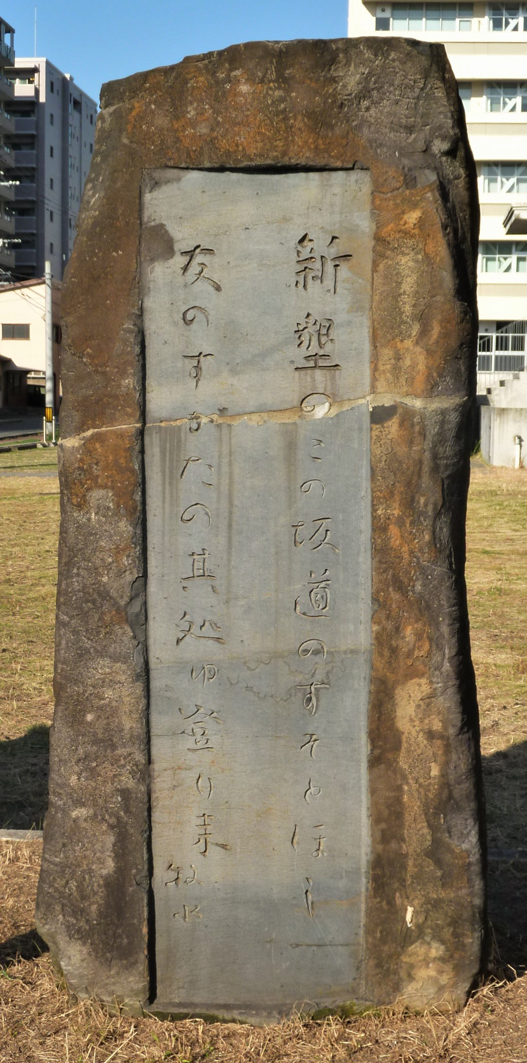 新墾のこの坂道のすそとほし
友のすがたの其処ゆ登り来
牧水